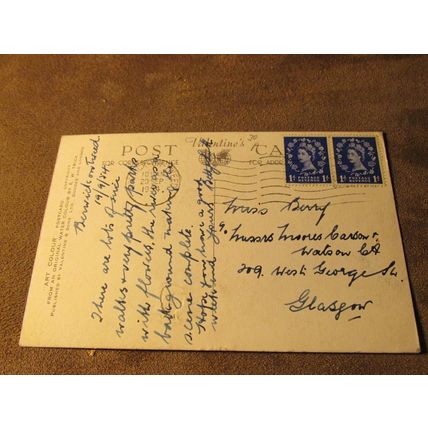 POST CARD
Valentine's
FOR COMMUNICATION
FOR ADDRESS
Berwick on Tweed
19/9/54
There are lots of nice
walks & very pretty parks
with flowers, the river as a
background making the
scene complete
Hope you have a good
weekend
Miss Berry
c/o Messrs Moores Carson &
Watson C.A
209. West George St.
Glasgow
POSTAGE REVENUE
1D 1D
POSTAGE REVENUE
1D 1D
"ART COLOUR" POSTCARD
FROM AN ORIGINAL WATER COLOUR DRAWING
PUBLISHED BY VALENTINE & SONS, LTD., DUNDEE AND LONDON